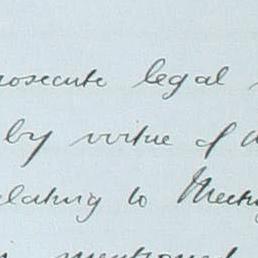 prosecute legal
by virtue of
relating to Meeting
mentioned